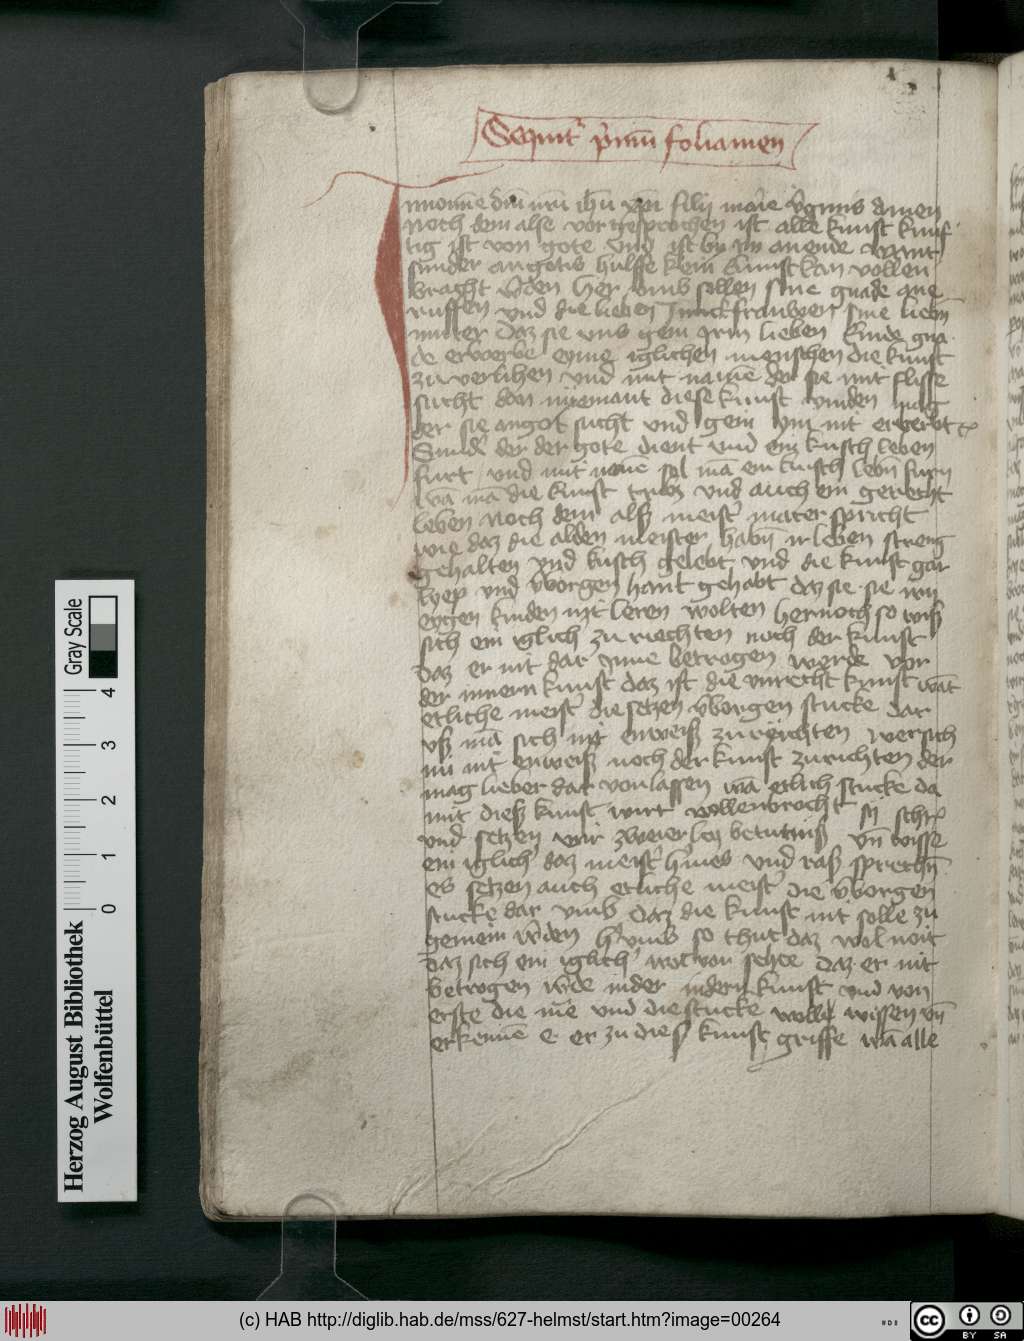 Sequit' p'mu foliamen
Innomine dni nri ihu xpi filij marie v'ginis amen
Noch dem alse vor gesprochen ist alle kunst kunf
tig ist von gote vnd ist by ym anende want
sunder angotis hulffe kein kunst kan vollen
braght w'den her vmb sollen sine gnade ane
ruffen vnd die lieben Junckfrauwen sine lieben
mutter daz sie vns gein irm lieben kinde gna
de erwerbe eyme iglichen menschen die kunst
zu verlihen vnd mit namē der sie mit flisse
sucht dan nyemant diese kunst vinden mag
der sie angot sucht vnd gein ym nit erwerbt
Sund' der der gote dient vnd ein kusch leben
furt vnd mit namē sol mā ein kusch leben furn
wā mā die kunst tribz vnd auch ein gerecht
leben noch dem als meist' mater spricht
wie daz die alden meister habn ir leben streng
gehalten vnd kusch gelebt vnd die kunst gar
tyep vnd v'borgen hant gehabt daz sie sie irn
eygen kinden nit leren wolten hernoch so wiß
sich ein iglich zu riechten noch der kunst
Daz er nit dar ynne betrogen werde vor
der innern kunst daz ist die vnrecht kunst wāt
etliche meist' die setzen v'borgen stucke dar
vß mā sich nit enweiß zu richten wer sich
nū nit enweiß noch der kunst zurichten der
mag lieber dar von lassen wā etlich stucke da
mit dieß kunst wirt vollenbrocht
vnd setzen wir zweierley betutniß vn wisse
ein iglich' daz meist' h'mes vnd raß sprechn
es setzen auch etliche meist' die v'borgen
stucke dar vmb daz die kunst nit solle zu
gemein w'den h'vmb so thut daz wol noit
daz sich ein iglich' wol vor sehe daz er nit
betrogen w'de in der indern kunst vnd von
erste die mē vnd die stucke wolle wissen vn
erkennē e er zu dies' kunst griffe wā alle
Herzog August Bibliothek
Wolfenbüttel
0 1 2 3 4
Gray Scale
(c) HAB http://diglib.hab.de/mss/627-helmst/start.htm?image=00264
cc BY SA